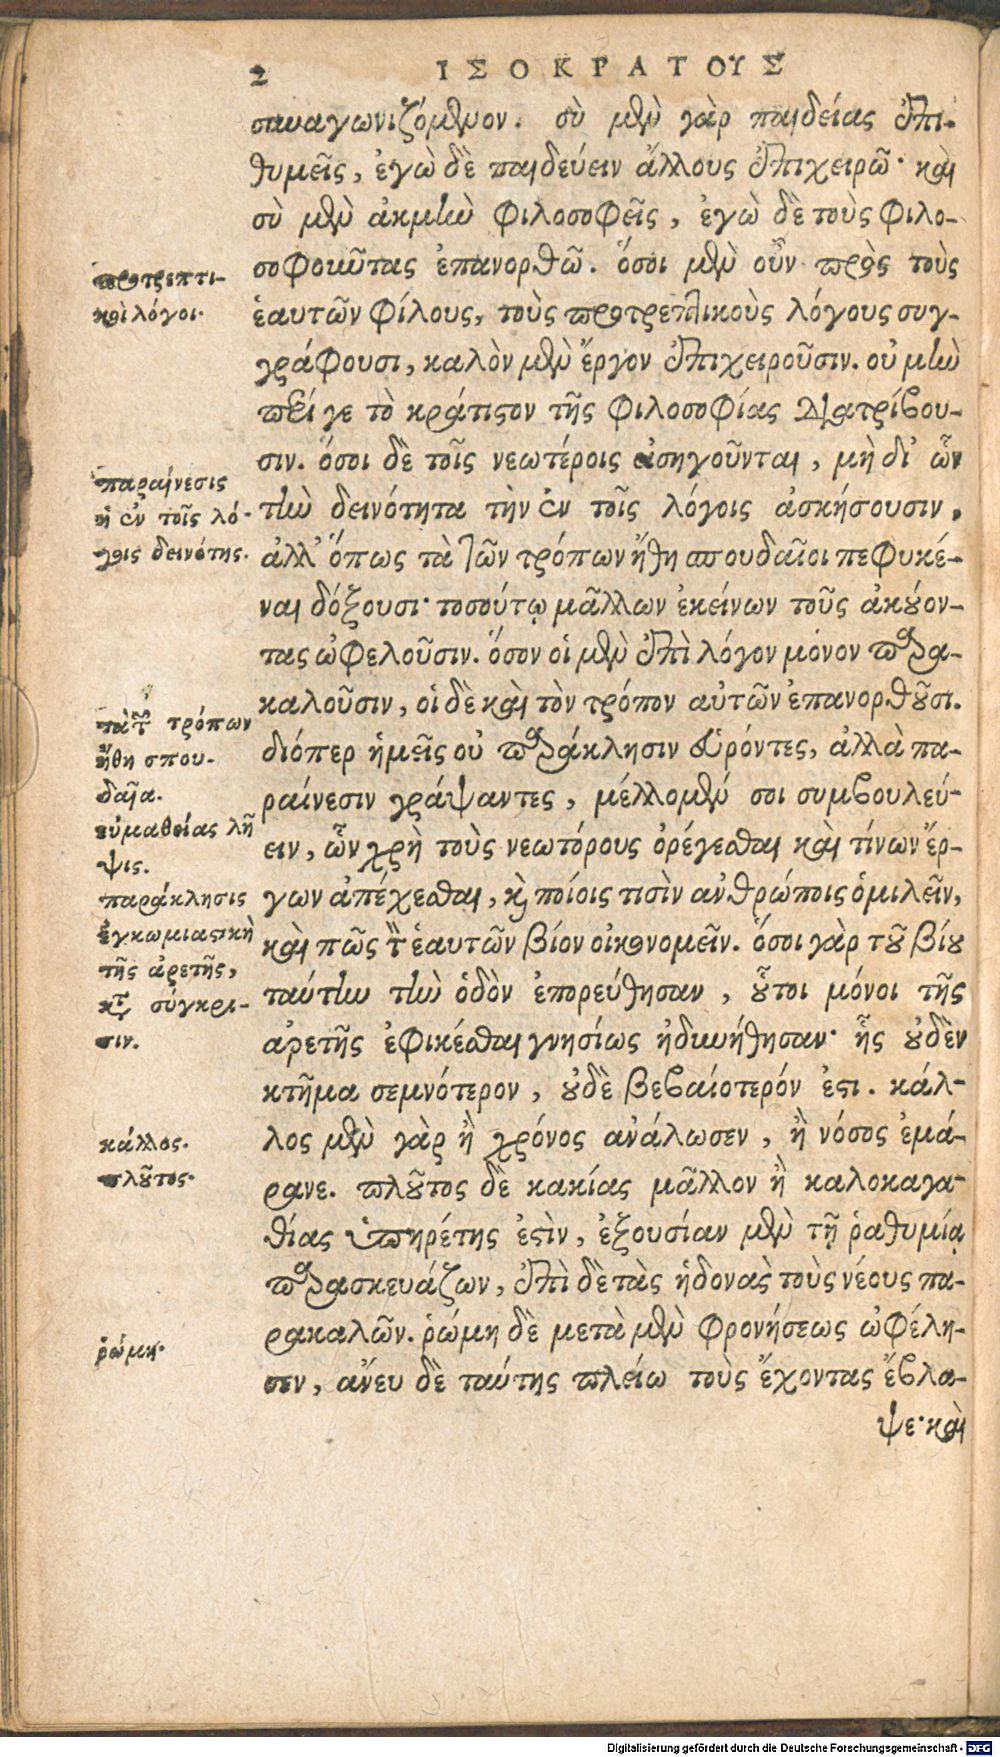 2 ΙΣΟΚΡΑΤΟΥΣ
συναγωνιζόμενον. σὺ μὲν γὰρ παιδείας ἐπι-
θυμεῖς, ἐγὼ δὲ παιδεύειν ἄλλους ἐπιχειρῶ· καὶ
σὺ μὲν ἀκμὴν φιλοσοφεῖς, ἐγὼ δὲ τοὺς φιλο-
σοφοῦντας ἐπανορθῶ. ὅσοι μὲν οὖν πρὸς τοὺς
ἑαυτῶν φίλους, τοὺς προτρεπτικοὺς λόγους συγ-
γράφουσι, καλὸν μὲν ἔργον ἐπιχειροῦσιν. οὐ μὴν
περί γε τὸ κράτιστον τῆς φιλοσοφίας διατρίβου-
σιν. ὅσοι δὲ τοῖς νεωτέροις εἰσηγοῦνται, μὴ δι' ὧν
τὴν δεινότητα τὴν ἐν τοῖς λόγοις ἀσκήσουσιν,
ἀλλ' ὅπως τὰ τῶν τρόπων ἤθη σπουδαῖοι πεφυκέ-
ναι δόξουσι· τοσούτῳ μᾶλλων ἐκείνων τοῦς ἀκούον-
τας ὠφελοῦσιν. ὅσον οἱ μὲν ἐπὶ λόγον μόνον παρα-
καλοῦσιν, οἱ δὲ καὶ τὸν τρόπον αὐτῶν ἐπανορθοῦσι.
διόπερ ἡμεῖς οὐ παράκλησιν εὑρόντες, ἀλλὰ πα-
ραίνεσιν γράψαντες, μέλλομέν σοι συμβουλεύ-
ειν, ὧν χρὴ τοὺς νεωτέρους ὀρέγεσθαι καὶ τίνων ἔρ-
γων ἀπέχεσθαι, καὶ ποίοις τισὶν ἀνθρώποις ὁμιλεῖν,
καὶ πῶς τὸν ἑαυτῶν βίον οἰκονομεῖν. ὅσοι γὰρ τοῦ βίου
ταύτην τὴν ὁδὸν ἐπορεύθησαν, οὗτοι μόνοι τῆς
ἀρετῆς ἐφικέσθαι γνησίως ἠδυνήθησαν· ἧς οὐδὲν
κτῆμα σεμνότερον, οὐδὲ βεβαιότερόν ἐστι. κάλ-
λος μὲν γὰρ ἢ χρόνος ἀνάλωσεν, ἢ νόσος ἐμά-
ρανε. πλοῦτος δὲ κακίας μᾶλλον ἢ καλοκαγα-
θίας ὑπηρέτης ἐστὶν, ἐξουσίαν μὲν τῇ ῥαθυμίᾳ
παρασκευάζων, ἐπὶ δὲ τὰς ἡδονὰς τοὺς νέους πα-
ρακαλῶν. ῥώμη δὲ μετὰ μὲν φρονήσεως ὠφέλη-
σεν, ἄνευ δὲ ταύτης πλείω τοὺς ἔχοντας ἔβλα-
ψε· καὶ
προτρεπτι-
κοὶ λόγοι.
παραίνεσις
ἡ ἐν τοῖς λό-
γοις δεινότης.
τὰ τῶν τρόπων
ἤθη σπου-
δαῖα.
εὐμαθείας λῆ
ψις.
παράκλησις
ἐγκωμιαστικὴ
τῆς ἀρετῆς,
κατὰ σύγκρι-
σιν.
κάλλος.
πλοῦτος.
ῥώμη.
Digitalisierung gefördert durch die Deutsche Forschungsgemeinschaft - DFG